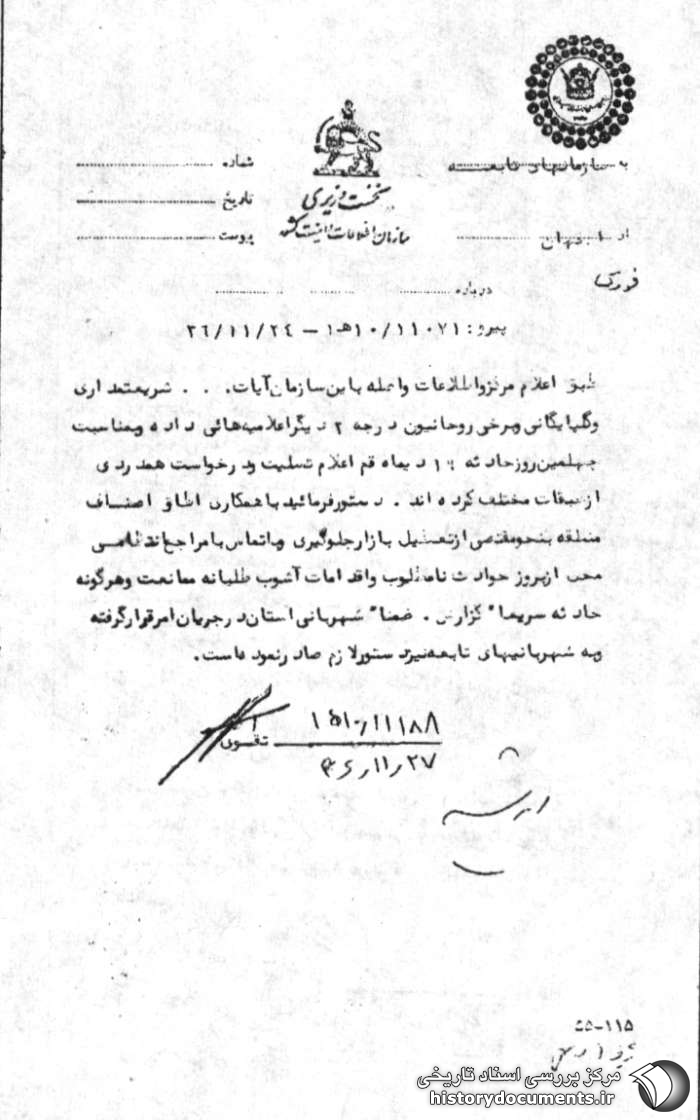 نخست وزیری
سازمان اطلاعات و امنیت کشور
به سازمانهای تابعه
از اصفهان
شماره
تاریخ
پیوست
درباره
پیرو: ۱۰/۱۱۰۷۱ ه‍ ۱ – ۳۶/۱۱/۲۴
طبق اعلام مرکز و اطلاعات واصله باین سازمان آیات . . . شریعتمداری
و گلپایگانی و برخی روحانیون درجه ۲ دیگر اعلامیه‌هائی داده و بمناسبت
چهلمین روز حادثه ۱۹ دیماه قم اعلام تسلیت و درخواست همدردی
از طبقات مختلف کرده اند . دستور فرمائید با همکاری اطاق اصناف
منطقه بنحو مقتضی از تعطیل بازار جلوگیری و با تماس با مراجع انتظامی
محل از بروز حوادث نامطلوب و اقدامات آشوب طلبانه ممانعت و هرگونه
حادثه سریعا" گزارش . ضمنا" شهربانی استان در جریان امر قرار گرفته
و به شهربانیهای تابعه نیز دستور لازم صادر نموده است.
تقوی
۳۶/۱۱/۲۷
۱۱۵-۵۵
مرکز بررسی اسناد تاریخی
historydocuments.ir